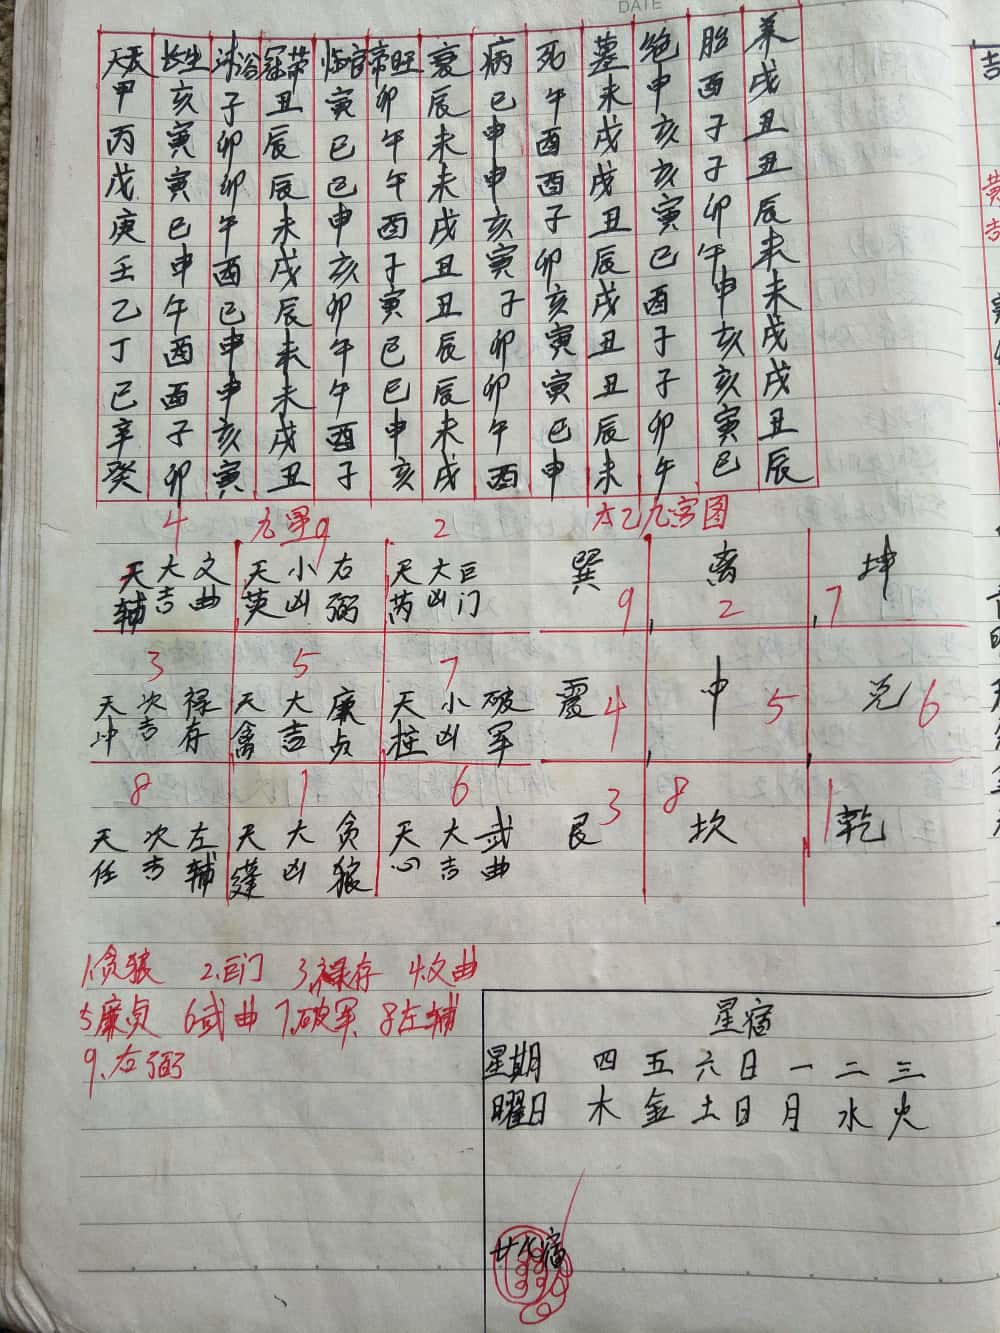 天 长生 沐浴 冠带 临官 帝旺 衰 病 死 墓 绝 胎 养
甲 亥 子 丑 寅 卯 辰 巳 午 未 申 酉 戌
丙 寅 卯 辰 巳 午 未 申 酉 戌 亥 子 丑
戊 寅 卯 辰 巳 午 未 申 酉 戌 亥 子 丑
庚 巳 午 未 申 酉 戌 亥 子 丑 寅 卯 辰
壬 申 酉 戌 亥 子 丑 寅 卯 辰 巳 午 未
乙 午 巳 辰 卯 寅 丑 子 亥 戌 酉 申 未
丁 酉 申 未 午 巳 辰 卯 寅 丑 子 亥 戌
己 酉 申 未 午 巳 辰 卯 寅 丑 子 亥 戌
辛 子 亥 戌 酉 申 未 午 巳 辰 卯 寅 丑
癸 卯 寅 丑 子 亥 戌 酉 申 未 午 巳 辰
九星
4 9 2
天辅 大吉 文曲 天英 小凶 右弼 天芮 大凶 巨门
3 5 7
天冲 次吉 禄存 天禽 大吉 廉贞 天柱 小凶 破军
8 1 6
天任 次吉 左辅 天蓬 大凶 贪狼 天心 大吉 武曲
太乙九宫图
巽 9 离 2 坤 7
震 4 中 5 兑 6
艮 3 坎 8 乾 1
1.贪狼 2.巨门 3.禄存 4文曲
5廉贞 6武曲 7.破军 8左辅
9.右弼
星宿
星期 四 五 六 日 一 二 三
曜日 木 金 土 日 月 水 火
廿八宿
DATE
吉
黄
吉